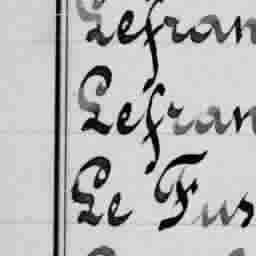 Lefran
Lefran
Le Fus